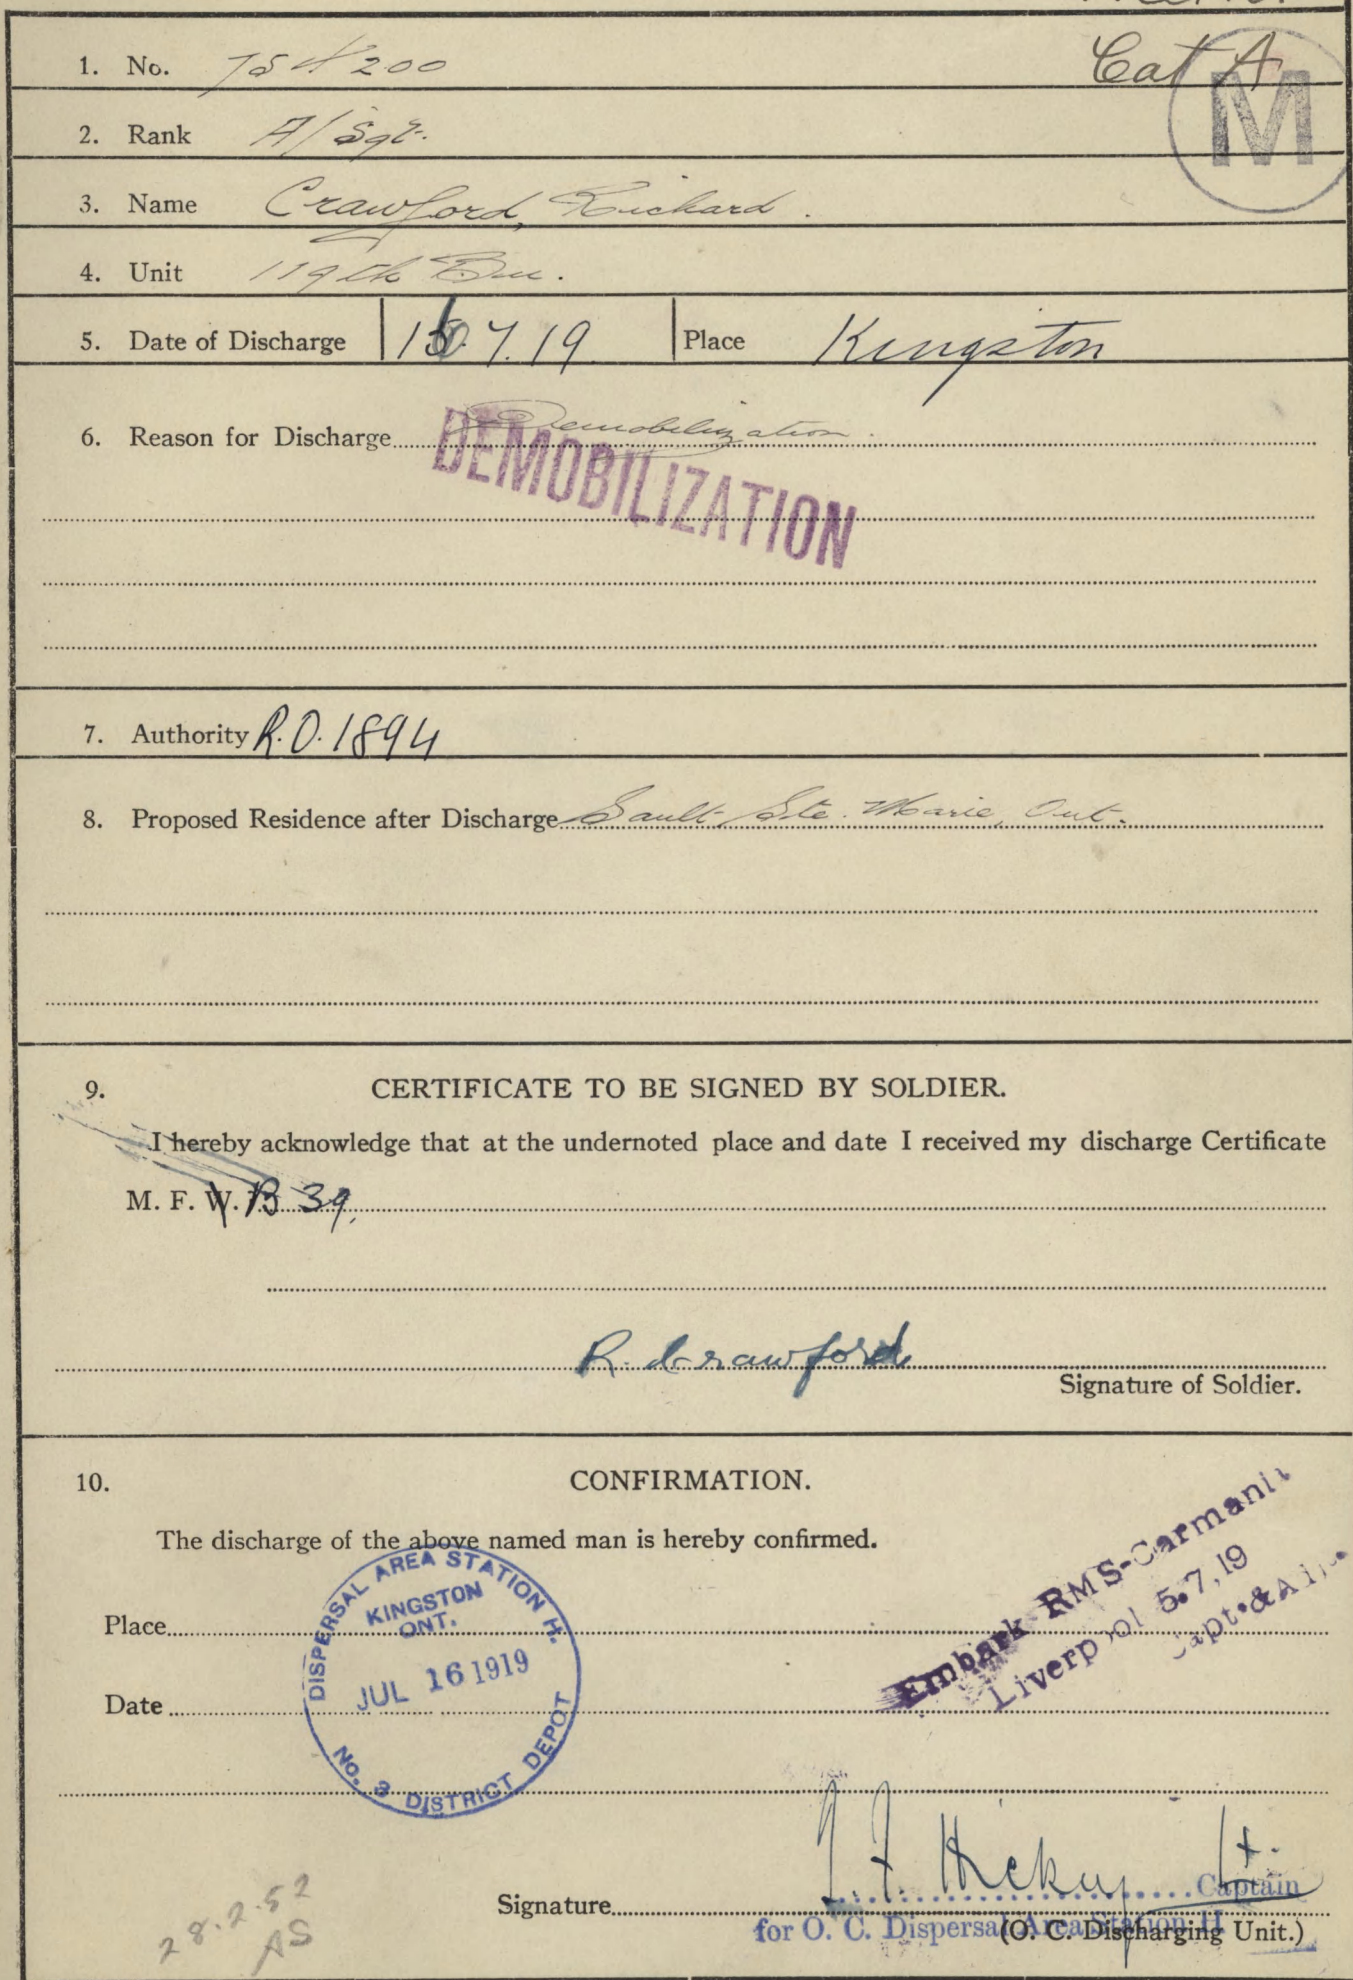 Cat A
M
1. No. 754200
2. Rank A/Sgt.
3. Name Crawford, Richard.
4. Unit 119th Bn.
5. Date of Discharge 16.7.19 Place Kingston
6. Reason for Discharge Demobilization.
DEMOBILIZATION
7. Authority R.O. 1894
8. Proposed Residence after Discharge Sault Ste. Marie, Ont.
9. CERTIFICATE TO BE SIGNED BY SOLDIER.
I hereby acknowledge that at the undernoted place and date I received my discharge Certificate
M. F. W. B 39.
R. Crawford
Signature of Soldier.
10. CONFIRMATION.
The discharge of the above named man is hereby confirmed.
Embark RMS-Carmania
Liverpool 5.7.19
Capt.&
Place
Date
DISPERSAL AREA STATION H.
KINGSTON
ONT.
JUL 16 1919
No. 3 DISTRICT DEPOT
Signature Hickey Lt. Captain
for O. C. Dispersal Area Station H
(O. C. Discharging Unit.)
28.2.52
AS